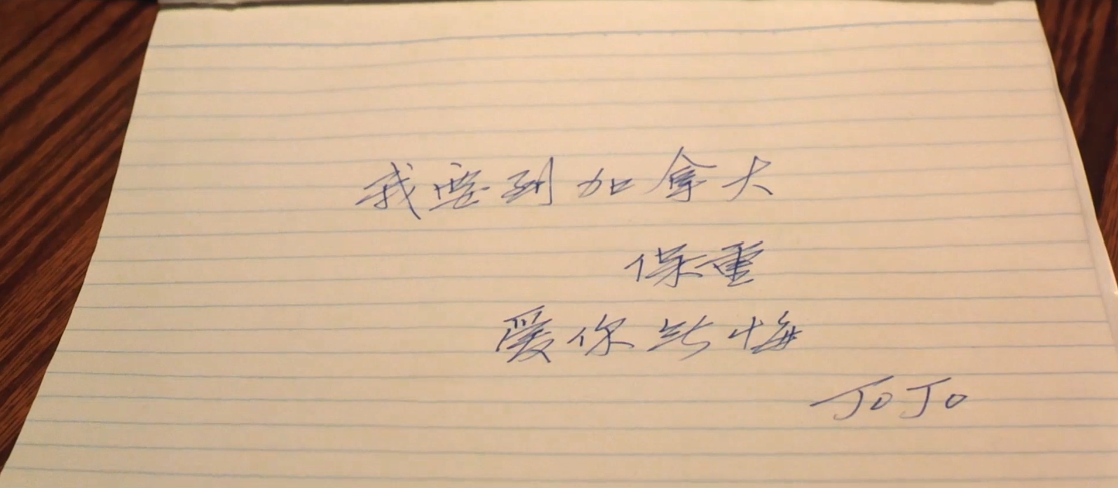 我要到加拿大
保重
爱你无悔
JoJo